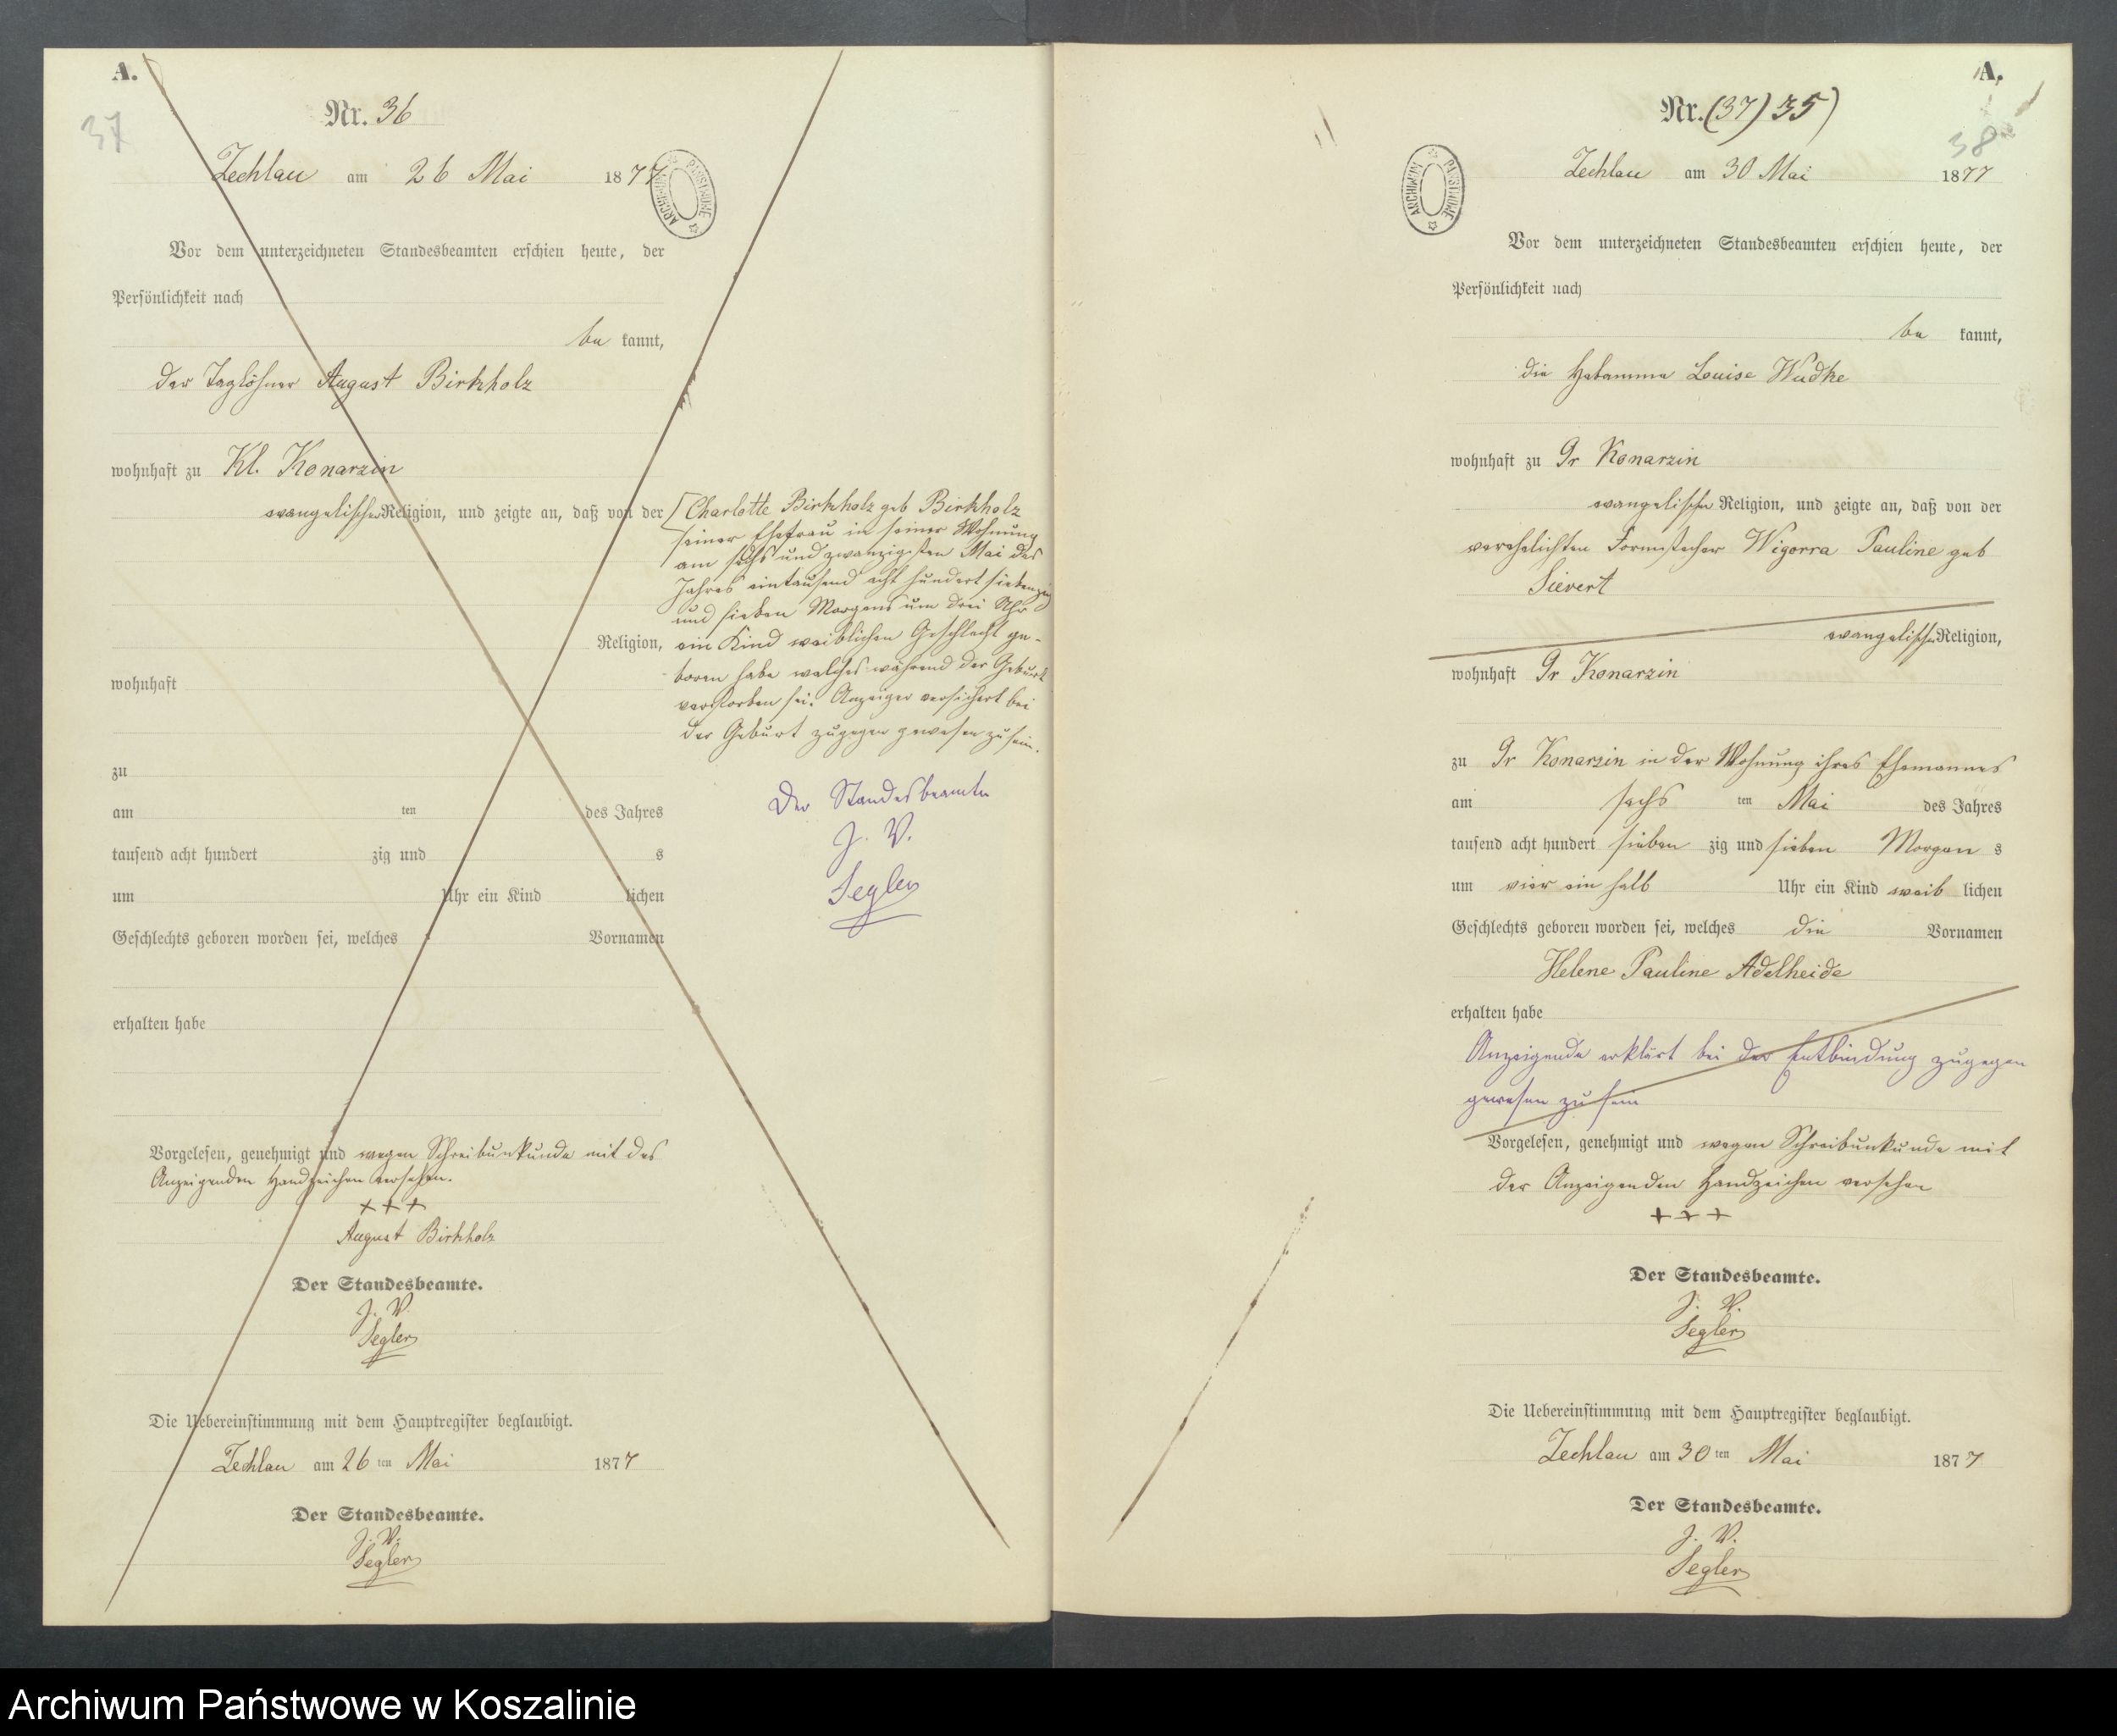 A.
37
Nr. 36
Zechlau am 26 Mai 1877
ARCHIWUM PAŃSTWOWE
Vor dem unterzeichneten Standesbeamten erschien heute, der
Persönlichkeit nach
be kannt,
der Taglöhner August Birkholz
wohnhaft zu Kl. Konarzin
evangelischer Religion, und zeigte an, daß von der
Religion,
wohnhaft
zu
am ten des Jahres
tausend acht hundert zig und s
um Uhr ein Kind lichen
Geschlechts geboren worden sei, welches Vornamen
erhalten habe
Vorgelesen, genehmigt und wegen Schreibunkunde mit des
Anzeigenden Handzeichen versehen.
+++
August Birkholz
Der Standesbeamte.
J. V.
Segler
Die Uebereinstimmung mit dem Hauptregister beglaubigt.
Zechlau am 26 ten Mai 1877
Der Standesbeamte.
J. V.
Segler
[Charlotte Birkholz geb Birkholz
seiner Ehefrau in seiner Wohnung
am sechs und zwanzigsten Mai des
Jahres eintausend acht hundert siebenzig
und sieben Morgens um drei Uhr
ein Kind weiblichen Geschlecht ge-
boren habe welches während der Geburt
verstorben sei. Anzeiger versichert bei
der Geburt zugegen gewesen zu sein.
Der Standesbeamte
J. V.
Segler
A.
Nr. (37) 35)
38
Zechlau am 30 Mai 1877
ARCHIWUM PAŃSTWOWE
Vor dem unterzeichneten Standesbeamten erschien heute, der
Persönlichkeit nach
be kannt,
die Hebamme Louise Wudke
wohnhaft zu Gr Konarzin
evangelischer Religion, und zeigte an, daß von der
verehelichten Formstecher Wigorra Pauline geb
Sievert
evangelischer Religion,
wohnhaft Gr Konarzin
zu Gr Konarzin in der Wohnung ihres Ehemannes
am sechs ten Mai des Jahres
tausend acht hundert sieben zig und sieben Morgen s
um vier ein halb Uhr ein Kind weib lichen
Geschlechts geboren worden sei, welches die Vornamen
Helene Pauline Adelheide
erhalten habe
Anzeigende erklärt bei der Entbindung zugegen
gewesen zu sein
Vorgelesen, genehmigt und wegen Schreibunkunde mit
der Anzeigenden Handzeichen versehen
+++
Der Standesbeamte.
J. V.
Segler
Die Uebereinstimmung mit dem Hauptregister beglaubigt.
Zechlau am 30 ten Mai 1877
Der Standesbeamte.
J. V.
Segler
Archiwum Państwowe w Koszalinie